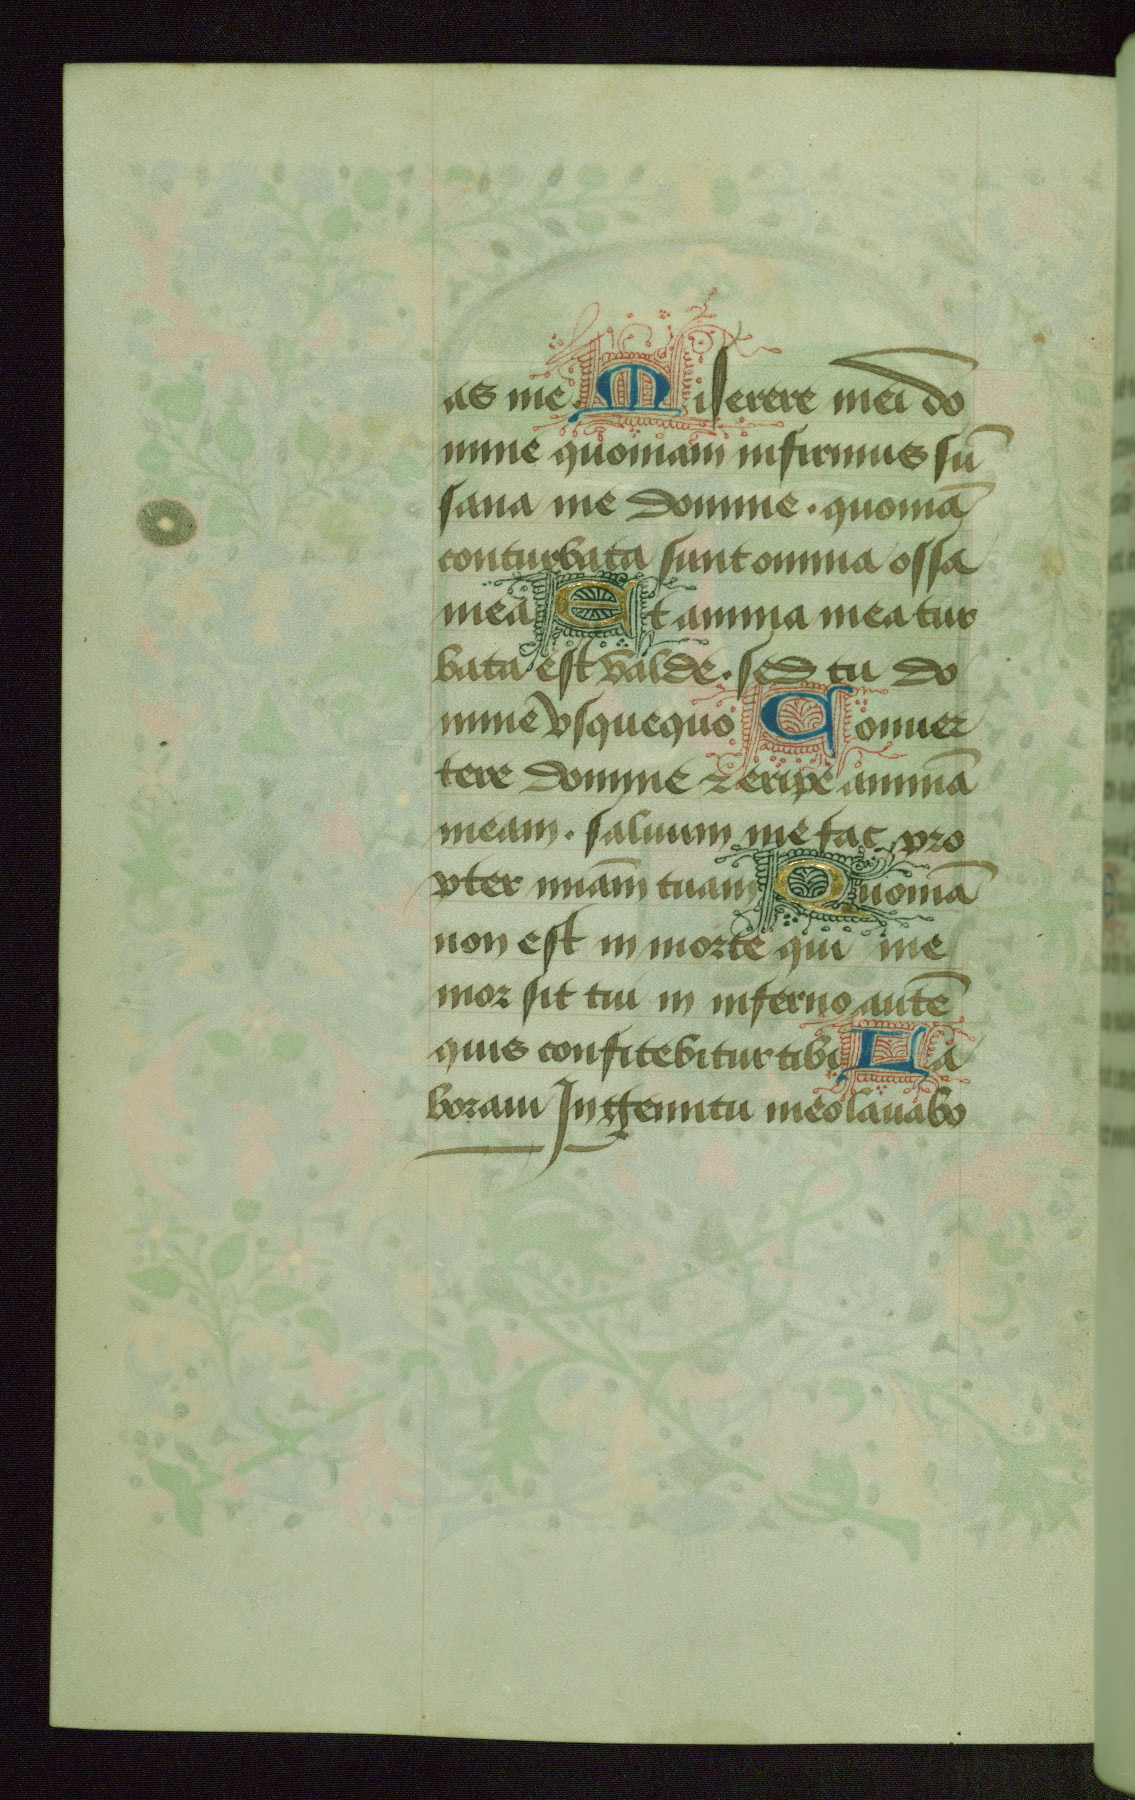 as me. Miserere mei do
mine quoniam infirmus sū
sana me domine. quoniā
conturbata sunt omnia ossa
mea Et anima mea tur
bata est valde. sed tu do
mine vsquequo Conuer
tere domine ⁊ eripe animā
meam. saluum me fac pro
pter miām tuam Quoniā
non est in morte qui me
mor sit tui in inferno autē
quis confitebitur tibi La
boraui In gemitu meo lauabo